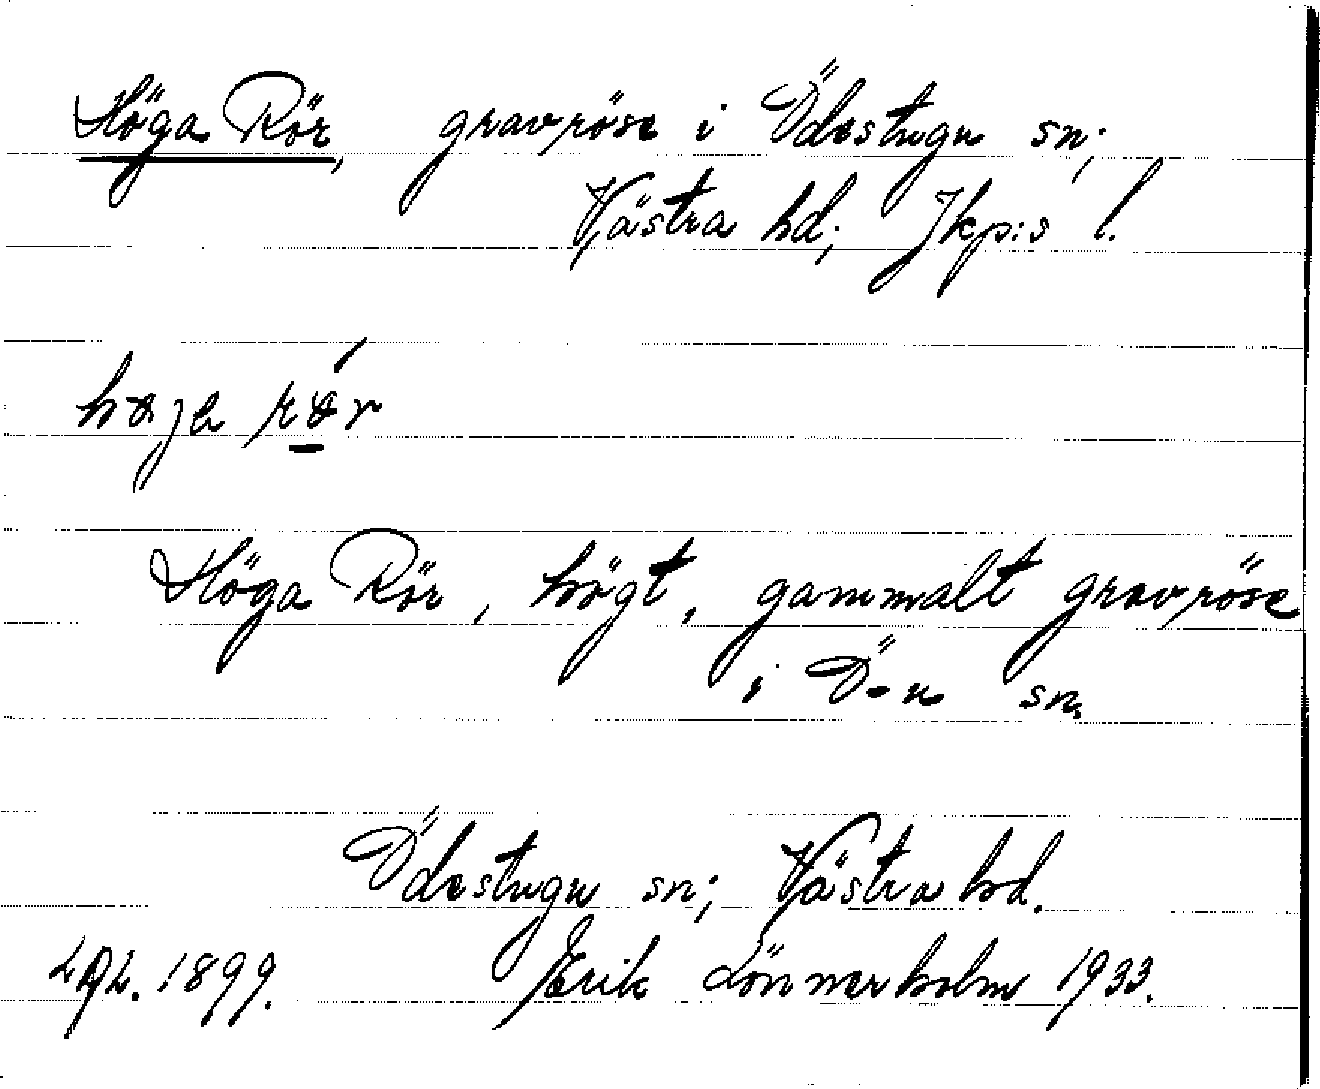 Höga Rör, gravröse i Ödestugu sn;
Västra hd; Jkp:s l.
Höga Rör, högt, gammalt gravröse
i Ö-u sn.
Ödestugu sn; Västra hd.
1899. Erik Lönnerholm 1933.